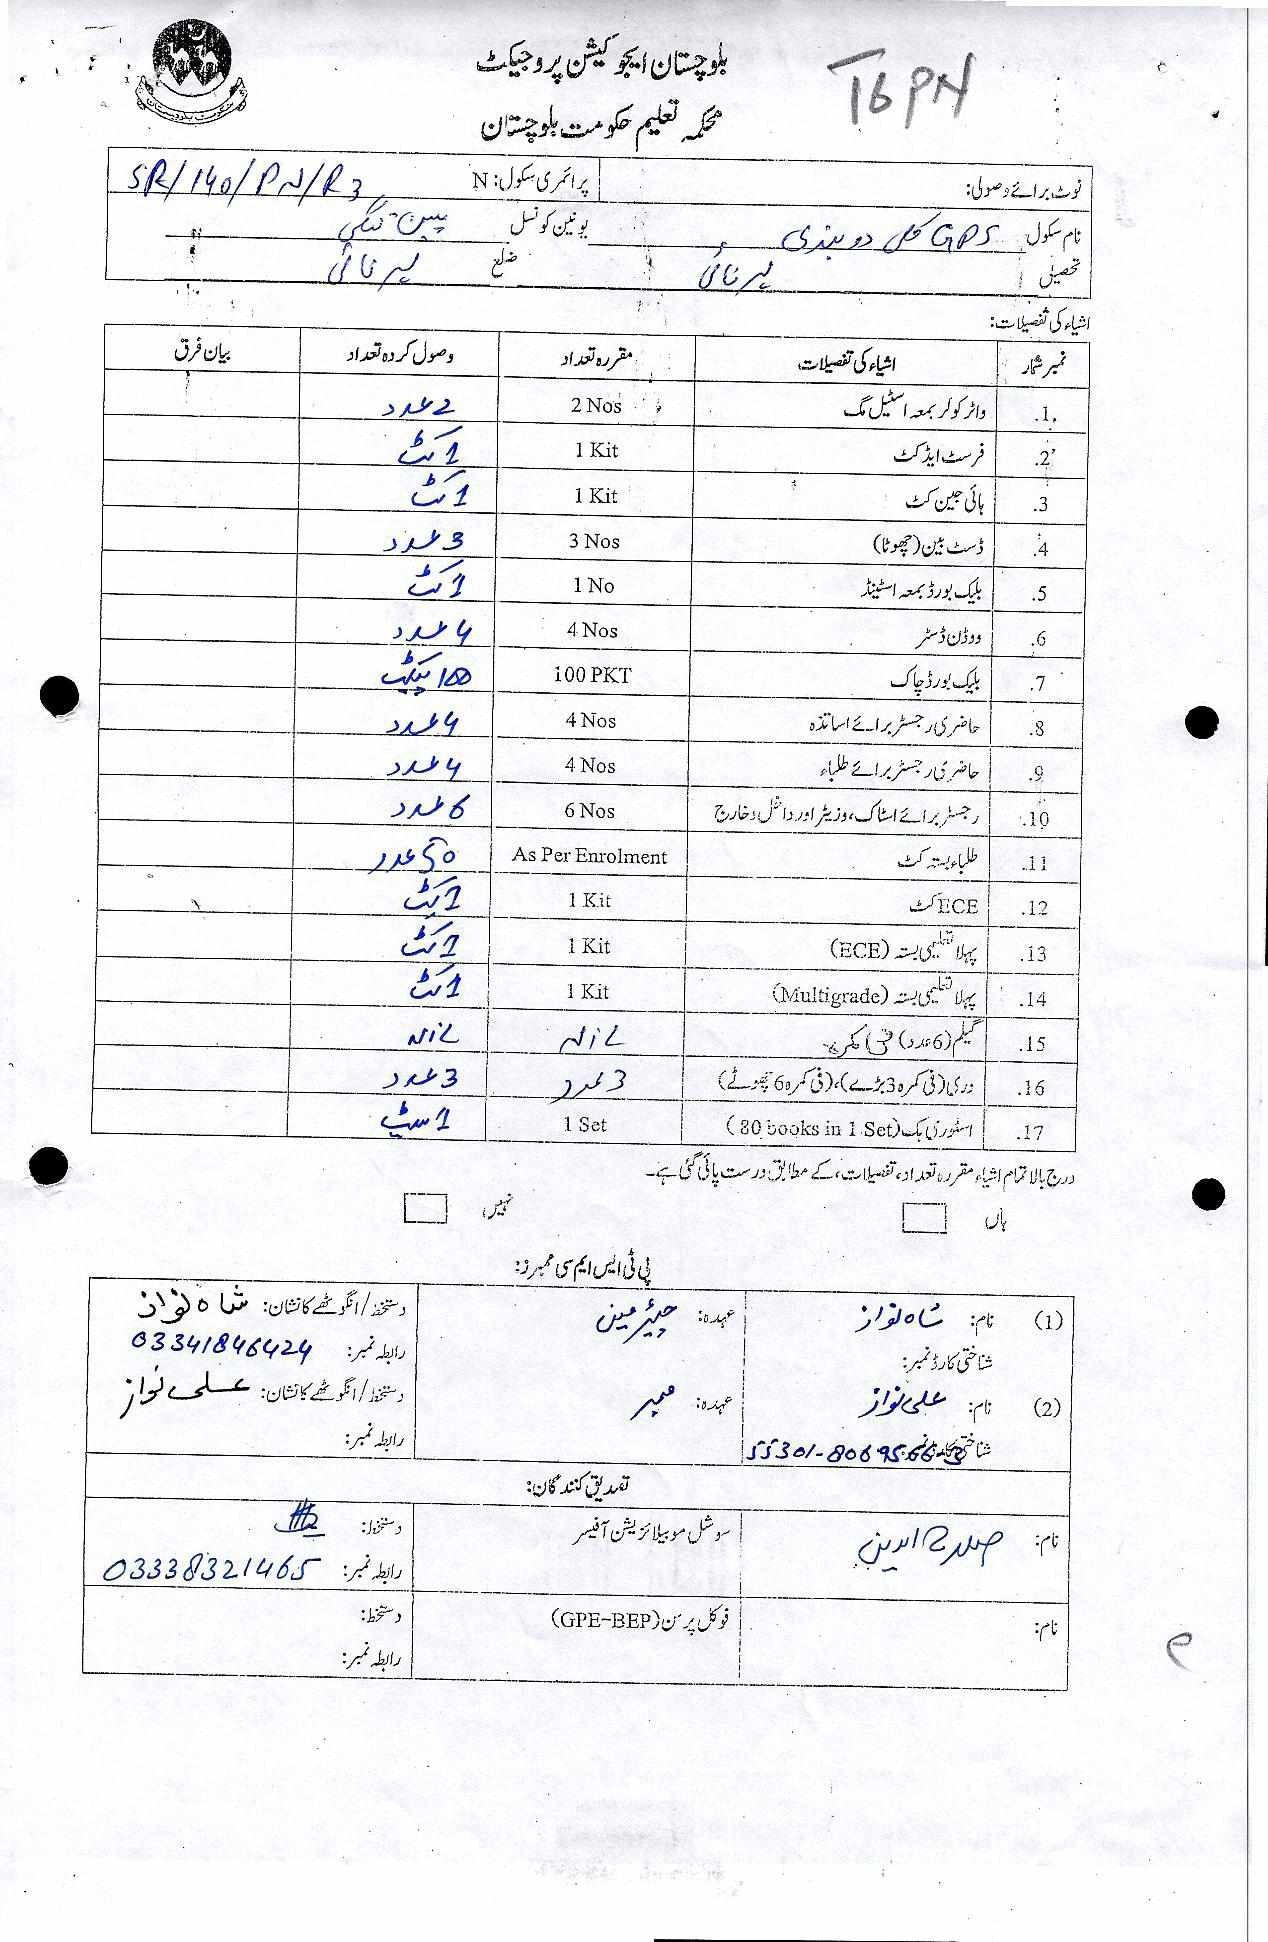 بلوچستان ایجوکیشن پروجیکٹ
T6PN
محکمہ تعلیم حکومت بلوچستان
نوٹ برائے وصولی: پرائمری سکول: N SR/140/PN/R3
نام سکول GPS کلی دوبندی یونین کونسل سپین تنگی
تحصیل ہرنائی ضلع ہرنائی
اشیاء کی تفصیلات:
نمبر شمار اشیاء کی تفصیلات مقررہ تعداد وصول کردہ تعداد بیان فرق
.1 واٹر کولر بمعہ اسٹیل مگ 2 Nos 2 عدد
.2 فرسٹ ایڈ کٹ 1 Kit 1 کٹ
.3 ہائی جین کٹ 1 Kit 1 کٹ
.4 ڈسٹ بین (چھوٹا) 3 Nos 3 عدد
.5 بلیک بورڈ بمعہ اسٹینڈ 1 No 1 کٹ
.6 ووڈن ڈسٹر 4 Nos 4 عدد
.7 بلیک بورڈ چاک 100 PKT 100 پیکٹ
.8 حاضری رجسٹر برائے اساتذہ 4 Nos 4 عدد
.9 حاضری رجسٹر برائے طلباء 4 Nos 4 عدد
.10 رجسٹر برائے اسٹاک، وزیٹر اور داخل و خارج 6 Nos 6 عدد
.11 طلباء بستہ کٹ As Per Enrolment 50 عدد
.12 ECE کٹ 1 Kit 1 کٹ
.13 پہلا تعلیمی بستہ (ECE) 1 Kit 1 کٹ
.14 پہلا تعلیمی بستہ (Multigrade) 1 Kit 1 کٹ
.15 گیلم (6 عدد) فی کمرہ NIL NIL
.16 دری (فی کمرہ 3 بڑے)، (فی کمرہ 6 چھوٹے) 3 عدد 3 عدد
.17 اسٹوری بک (80 books in 1 Set) 1 Set 1 سیٹ
درج بالا تمام اشیاء مقررہ تعداد، تفصیلات، کے مطابق درست پائی گئی ہے۔
ہاں نہیں
پی ٹی ایس ایم سی ممبرز:
(1) نام: شاہ نواز عہدہ: چیئرمین دستخط/انگوٹھے کا نشان: شاہ نواز
شناختی کارڈ نمبر: رابطہ نمبر: 03341846424
(2) نام: علی نواز عہدہ: ممبر دستخط/انگوٹھے کا نشان: علی نواز
شناختی کارڈ نمبر: 55301-8069566-3 رابطہ نمبر:
تصدیق کنندگان:
نام: صلاح الدین سوشل موبیلائزیشن آفیسر دستخط:
رابطہ نمبر: 03338321465
نام: فوکل پرسن (GPE-BEP) دستخط:
رابطہ نمبر: